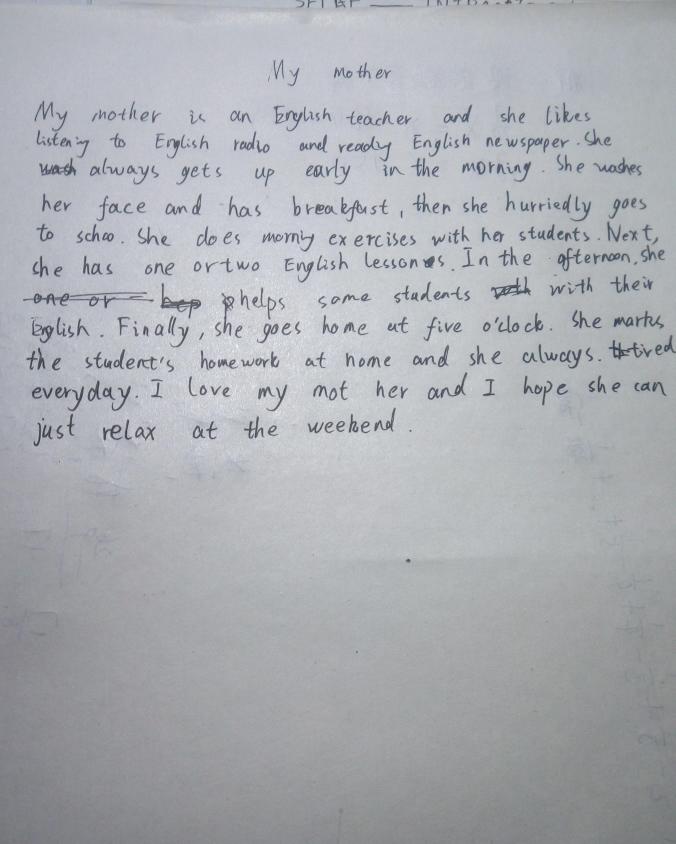 My mother
My mother is an English teacher and she likes
listening to English radio and ready English newspaper. She
wash always gets up early in the morning. She washes
her face and has breakfast, then she hurriedly goes
to schoo. She does morniy exercises with her students. Next,
she has one or two English lessons. In the afternoon, she
one or hep helps some students with with their
English. Finally, she goes home at five o'clock. She marks
the student's homework at home and she always. tired
everyday. I love my mot her and I hope she can
just relax at the weekend.